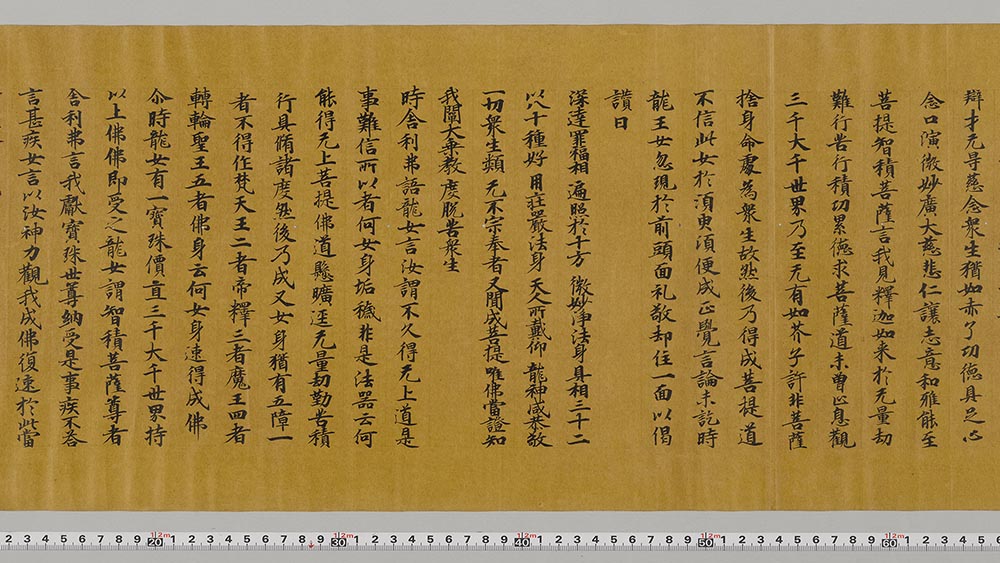 辯才无导慈念衆生猶如赤子功德具足心
念口演微妙廣大慈悲仁讓志意和雅能至
菩提智積菩薩言我見釋迦如来於无量劫
難行苦行積功累德求菩薩道未曽止息觀
三千大千世界乃至无有如芥子許非菩薩
捨身命處為衆生故然後乃得成菩提道
不信此女於湏臾頃便成正覺言論未訖時
龍王女忽現於前頭面礼敬却住一面以偈
讃曰
深達罪福相 遍照於十方 微妙淨法身 具相三十二
以八十種好 用莊嚴法身 天人所戴仰 龍神咸恭敬
一切衆生類 无不宗奉者 又聞成菩提 唯佛當證知
我闡大乗教 度脱苦衆生
時舎利弗語龍女言汝謂不久得无上道是
事難信所以者何女身垢穢非是法器云何
能得无上菩提佛道懸曠逕无量劫勤苦積
行具脩諸度然後乃成又女身猶有五障一
者不得作梵天王二者帝釋三者魔王四者
轉輪聖王五者佛身云何女身速得成佛
尒時龍女有一寶珠價直三千大千世界持
以上佛佛即受之龍女謂智積菩薩尊者
舎利弗言我獻寶珠世尊納受是事疾不荅
言甚疾女言以汝神力觀我成佛復速於此當
2 3 4 5 6 7 8 9 20 1 2 3 4 5 6 7 8 9 30 1 2 3 4 5 6 7 8 9 40 1 2 3 4 5 6 7 8 9 50 1 2 3 4 5 6 7 8 9 60 1 2 3 4 5 6